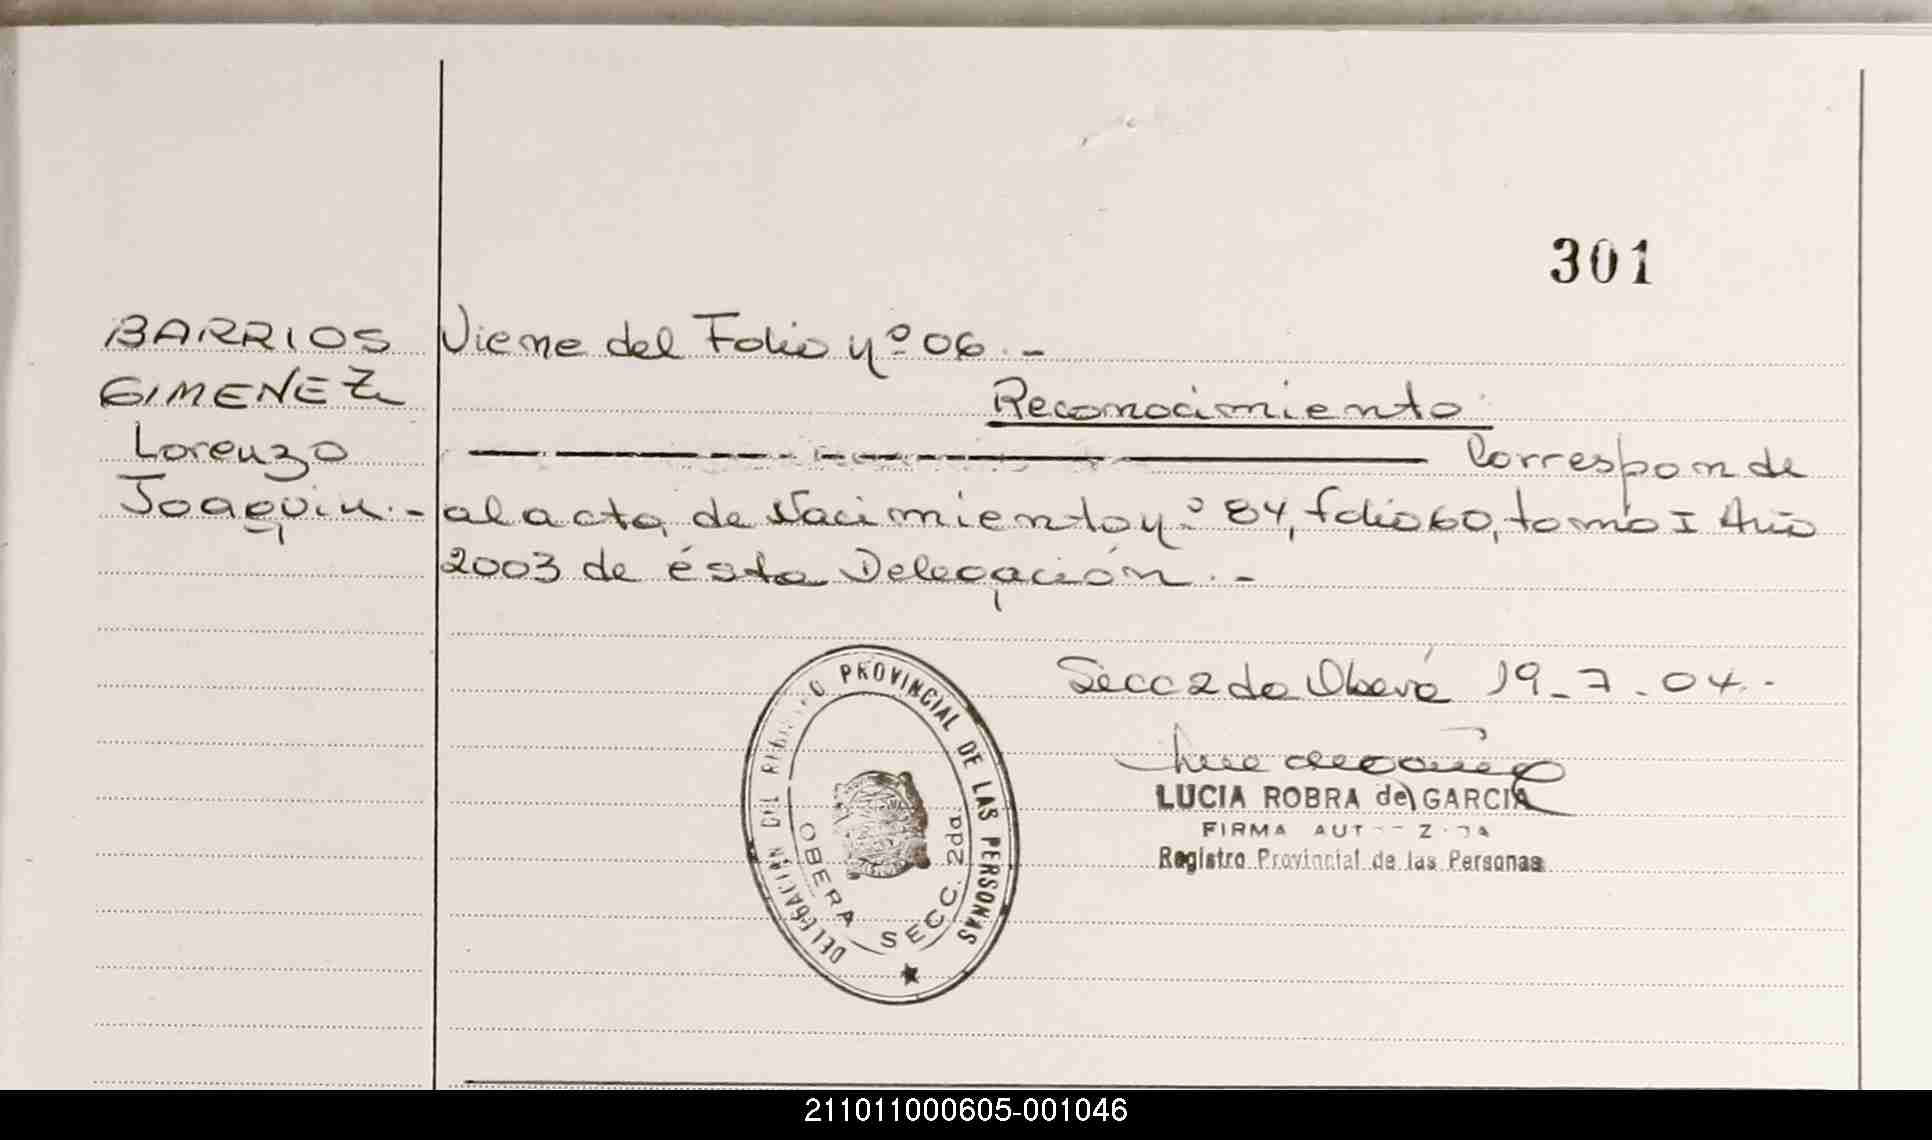 301
BARRIOS
GIMENEZ
Lorenzo
Joaquin.-
Viene del Folio nº 06.-
Reconocimiento
Corresponde
al acta de Nacimiento nº 84, folio 60, tomo I Año
2003 de ésta Delegación.-
Secc 2da Oberá 19-7-04.-
LUCIA ROBRA de GARCIA
FIRMA
Registro Provincial de las Personas
DELEGACIÓN DEL REGISTRO PROVINCIAL DE LAS PERSONAS
OBERA SECC. 2da.
211011000605-001046